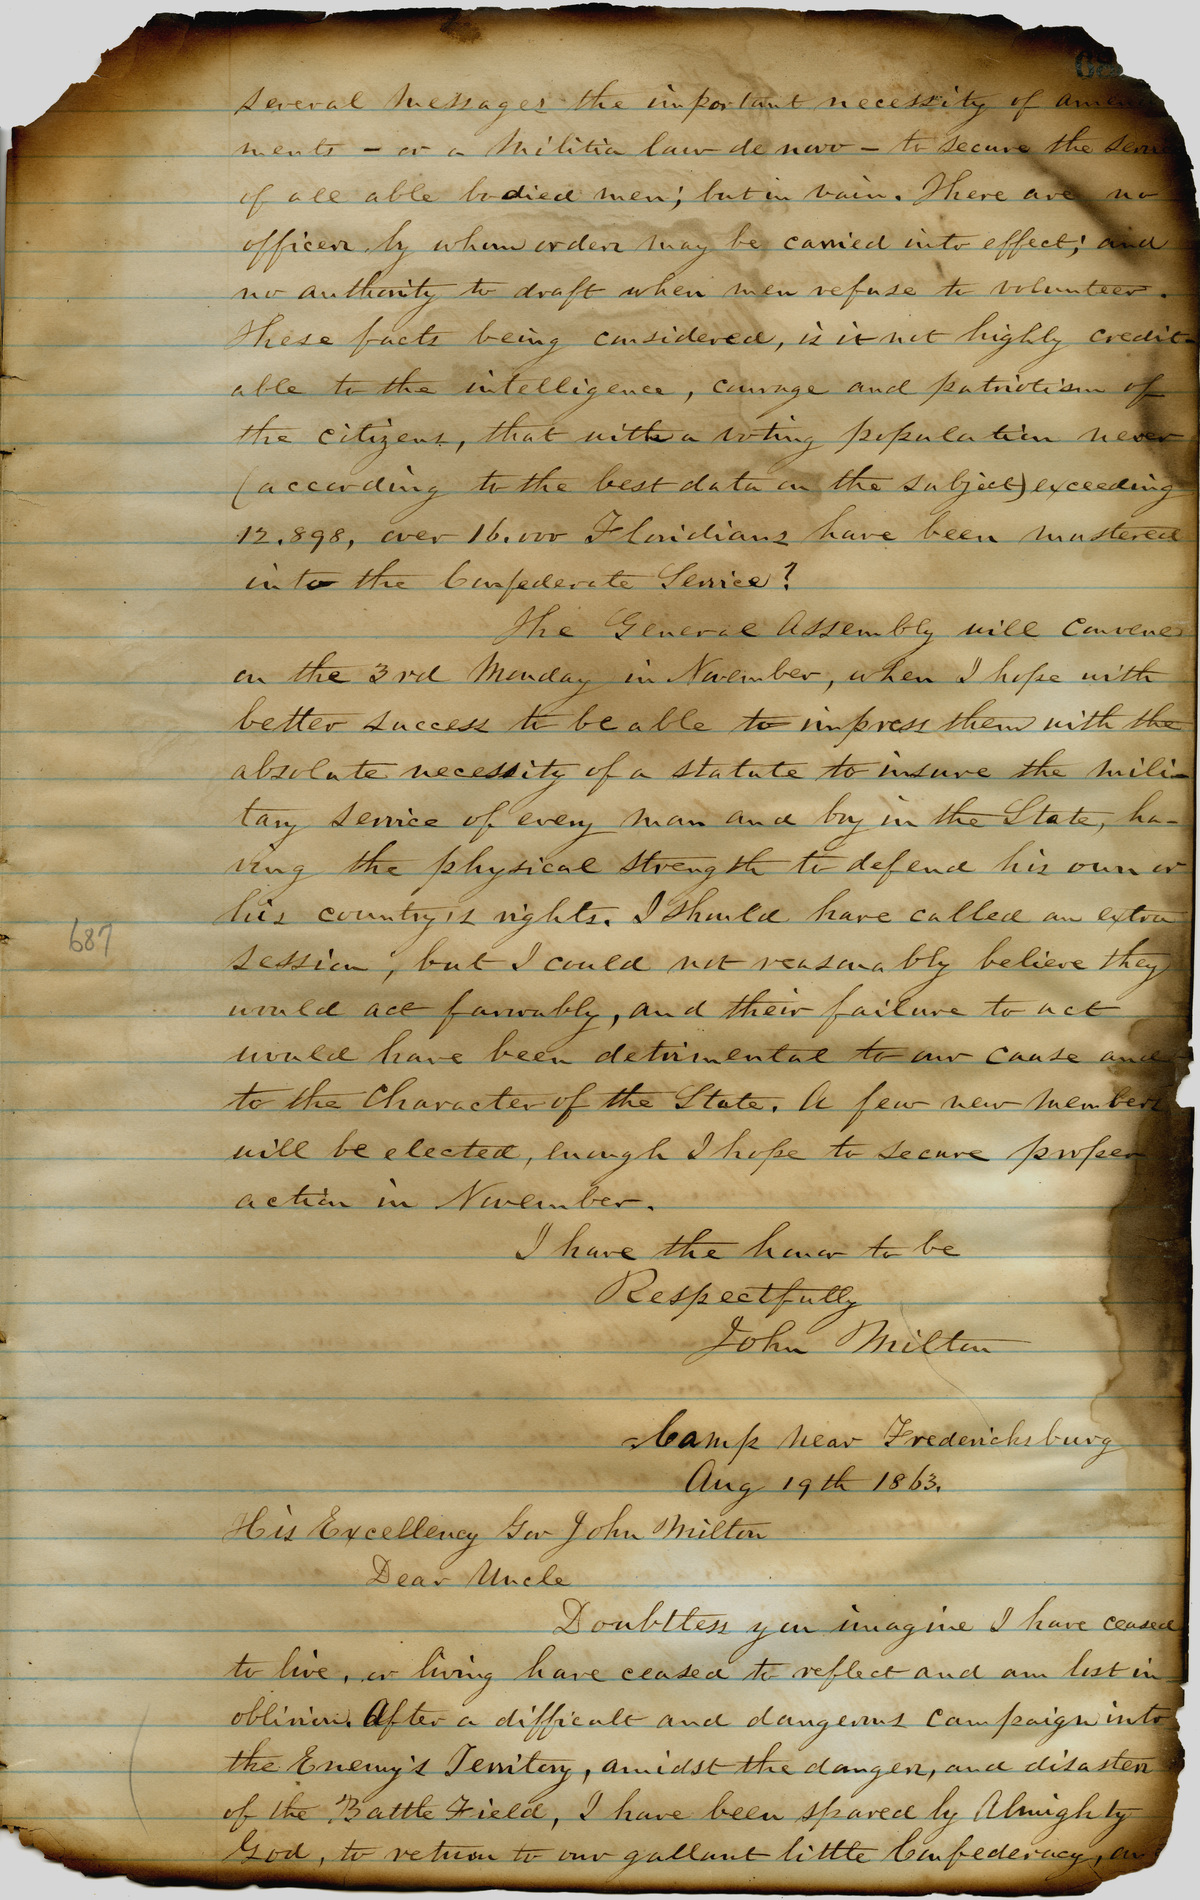 several messages the important necessity of amend
ments - or a Militia law de novo - to secure the service
of all able bodied men; but in vain. There are no
officers by whom orders may be carried into effect; and
no authority to draft when men refuse to volunteer.
These facts being considered, is it not highly credit-
able to the intelligence, courage and patriotism of
the citizens, that with a voting population never
(according to the best data on the subject) exceeding
12.898, over 16.000 Floridians have been mustered
into the Confederate Service?
The General Assembly will convene
on the 3rd Monday in November, when I hope with
better success to be able to impress them with the
absolute necessity of a statute to insure the mili-
tary service of every man and boy in the State, ha-
ving the physical strength to defend his own or
his country's rights. I should have called an extra
687
session; but I could not reasonably believe they
would act favorably, and their failure to act
would have been detrimental to our cause and
to the Character of the State. A few new members
will be elected, enough I hope to secure proper
action in November.
I have the honor to be
Respectfully
John Milton
Camp near Fredericksburg
Aug 19th 1863.
His Excellency Gov John Milton
Dear Uncle
Doubtless you imagine I have ceased
to live, or living have ceased to reflect and am lost in
oblivion. After a difficult and dangerous campaign into
the Enemy's Territory, amidst the dangers, and disasters
of the Battle Field, I have been spared by Almighty
God, to return to our gallant little Confederacy,